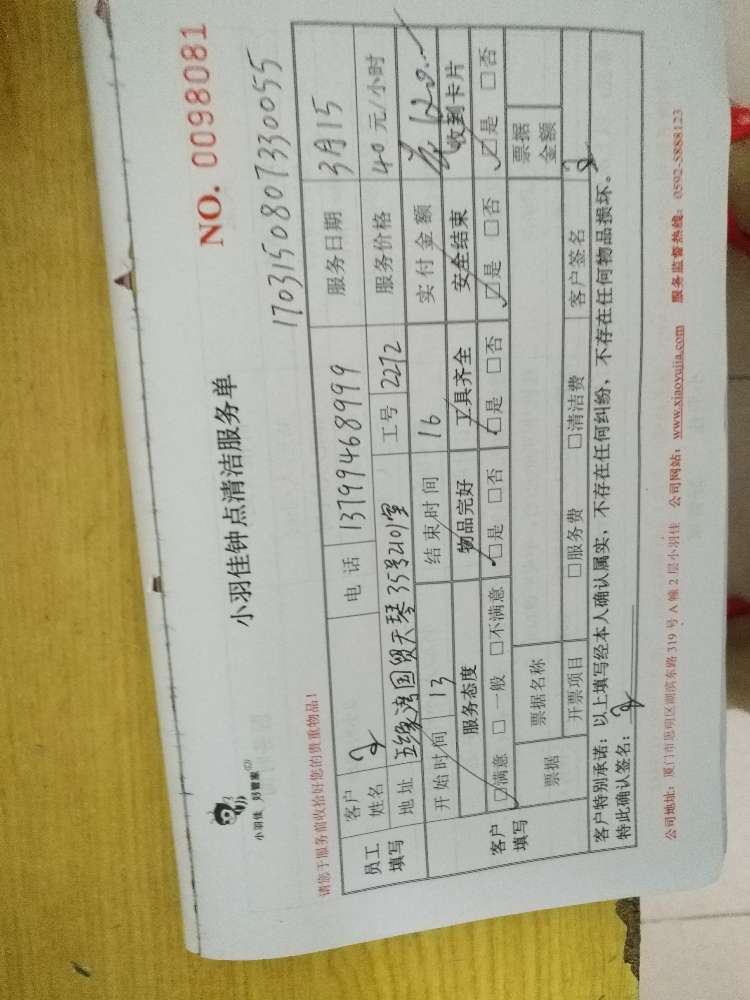 小羽佳 好管家
小羽佳钟点清洁服务单
NO. 0098081
1703150807330055
请您于服务前收拾好您的贵重物品!
员工填写
客户姓名
电 话 13799468999
服务日期 3月15
地 址 五缘湾国贸天琴35号2101室
工号 2272
服务价格 40 元/小时
客户填写
开始时间 13
结束时间 16
实付金额 120.—
服务态度 物品完好 工具齐全 安全结束 收到卡片
□满意 □一般 □不满意 □是 □否 □是 □否 □是 □否 □是 □否
票据 票据名称 票据金额
开票项目 □服务费 □清洁费 客户签名
客户特别承诺:以上填写经本人确认属实,不存在任何纠纷,不存在任何物品损坏。
特此确认签名:
公司地址:厦门市思明区湖滨东路 319 号 A 幢 2 层小羽佳 公司网站:www.xiaoyujia.com 服务监督热线:0592-5888123